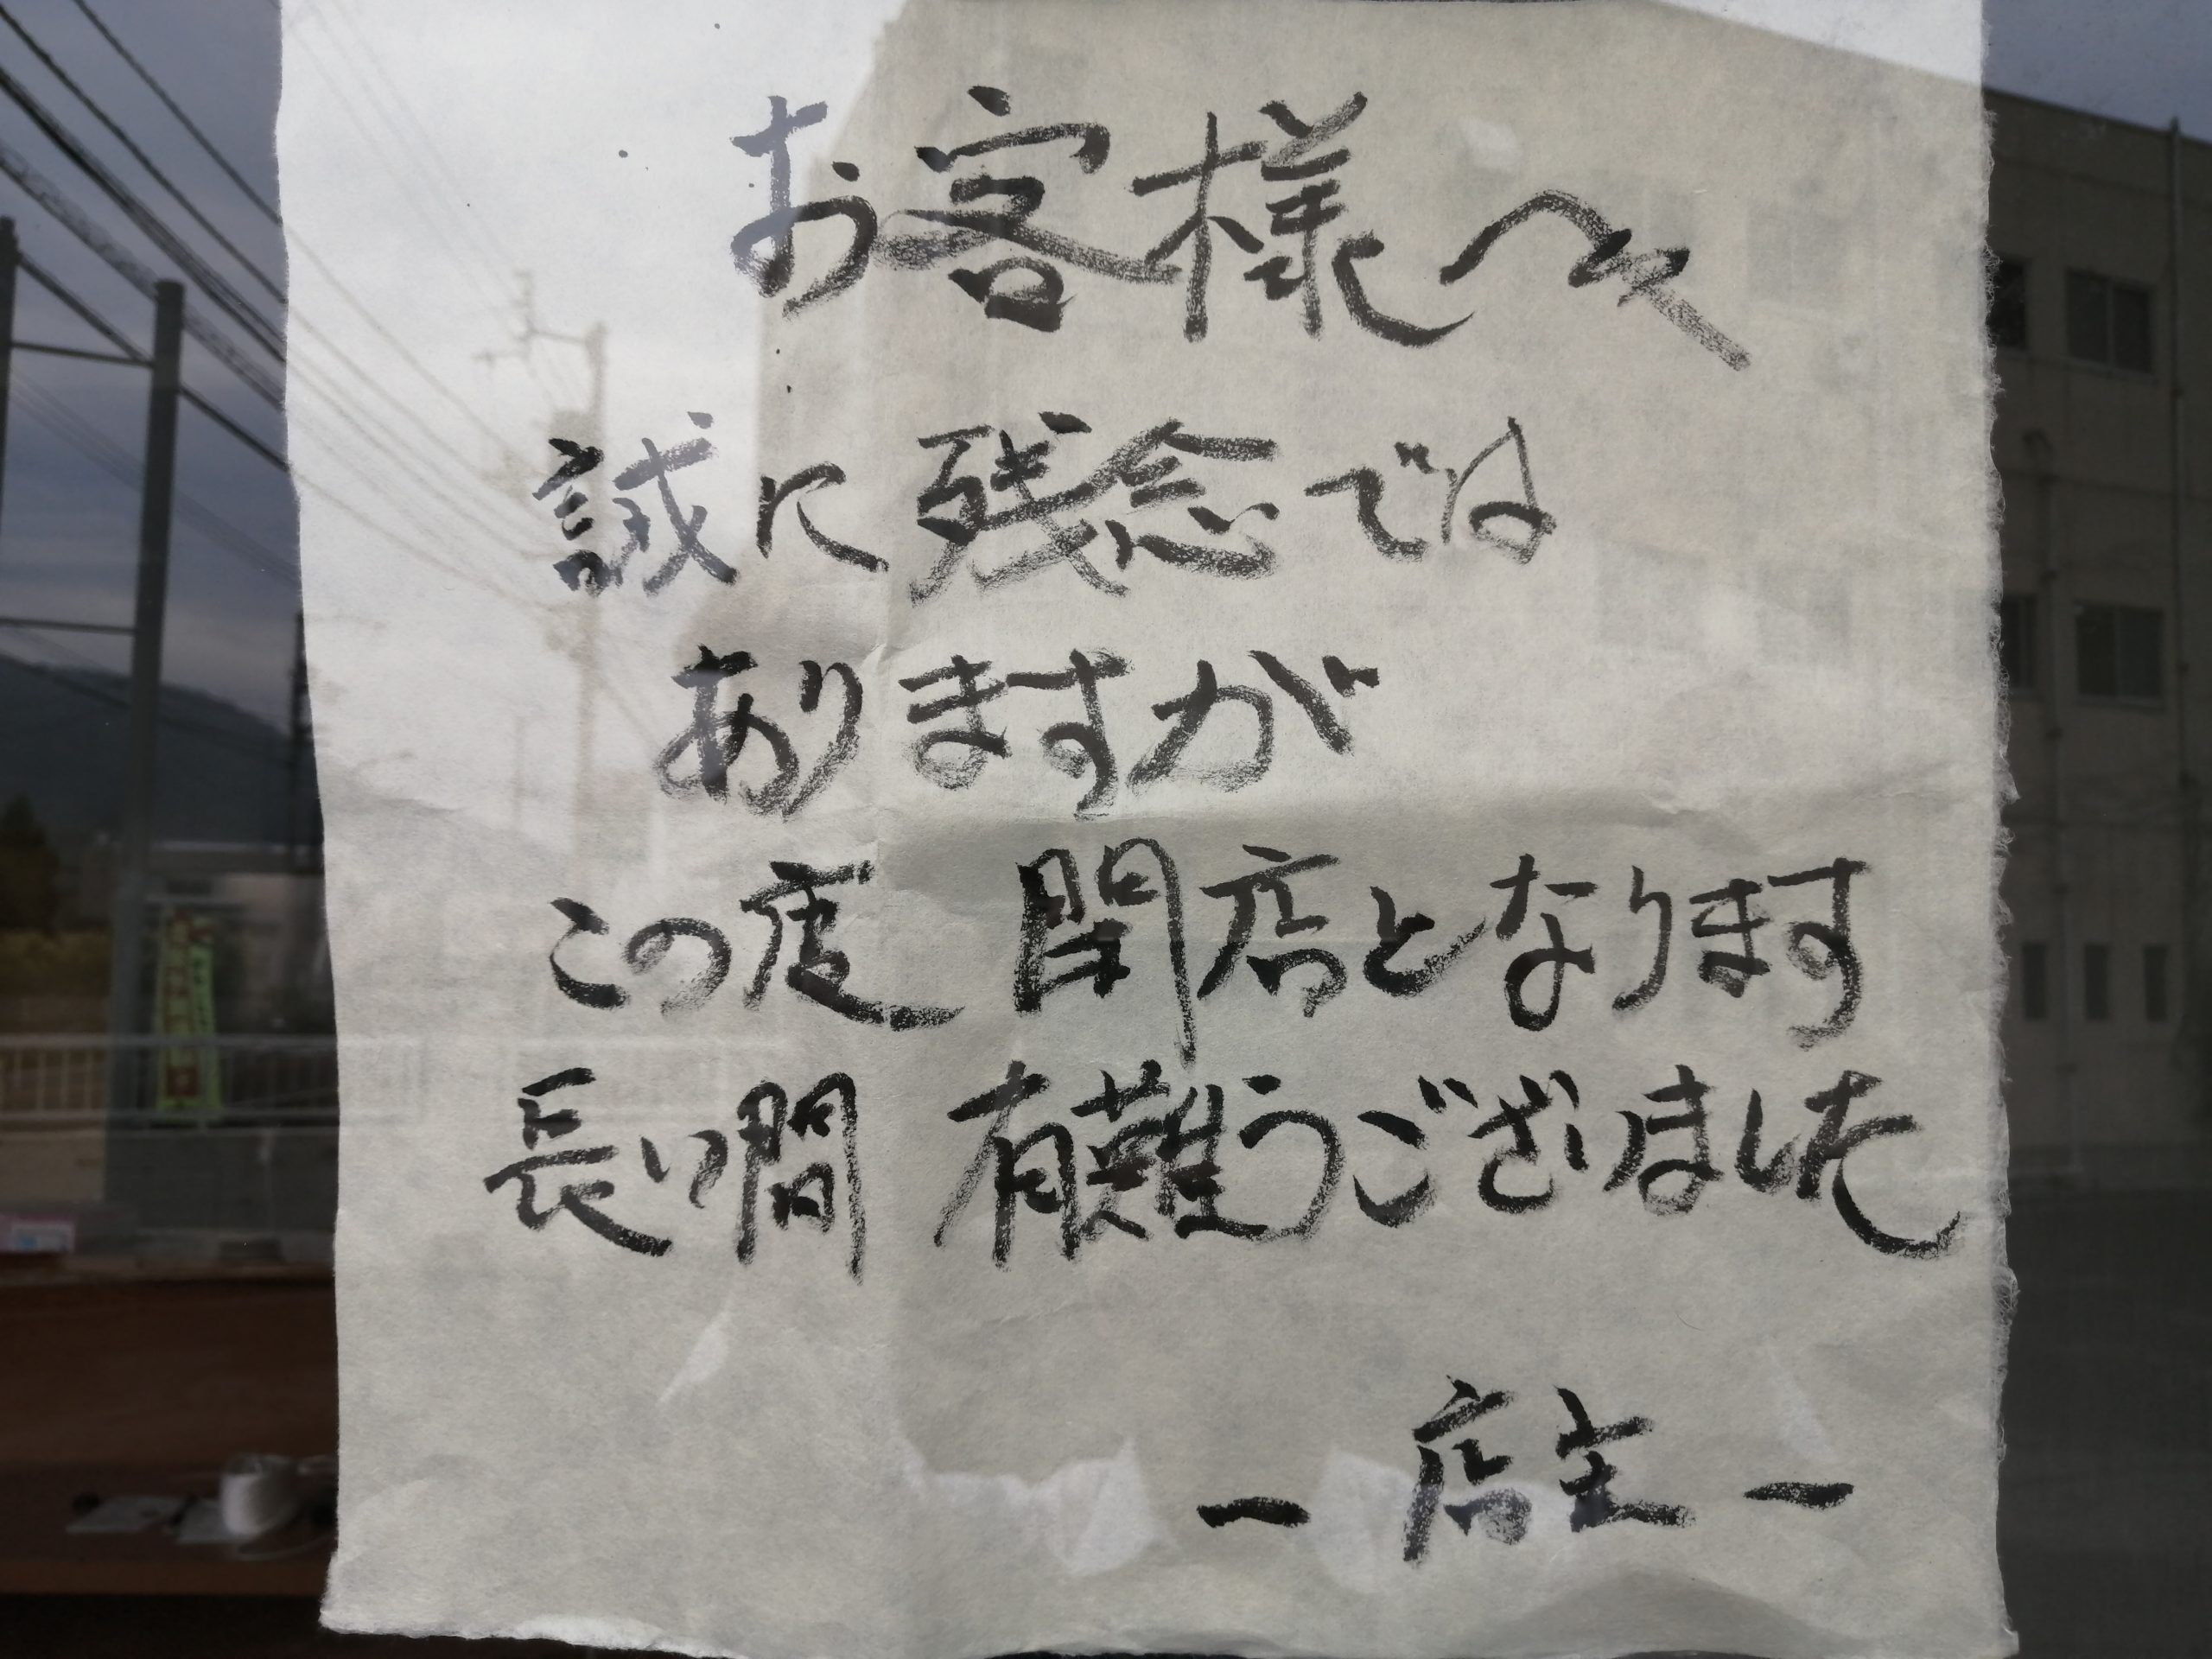 お客様へ
誠に残念では
ありますが
この度 閉店となります
長い間 有難うございました
ー 店主 ー